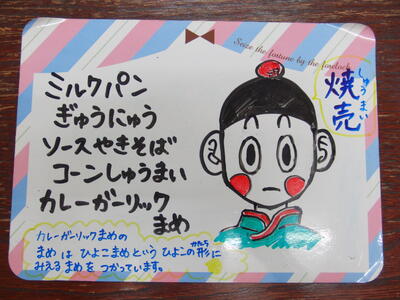 Seize the fortune by the forelock.
しゅうまい
焼売
ミルクパン
ぎゅうにゅう
ソースやきそば
コーンしゅうまい
カレーガーリック
まめ
カレーガーリックまめの
まめ は ひよこまめという ひよこの形に
かたち
みえる まめを つかっています。